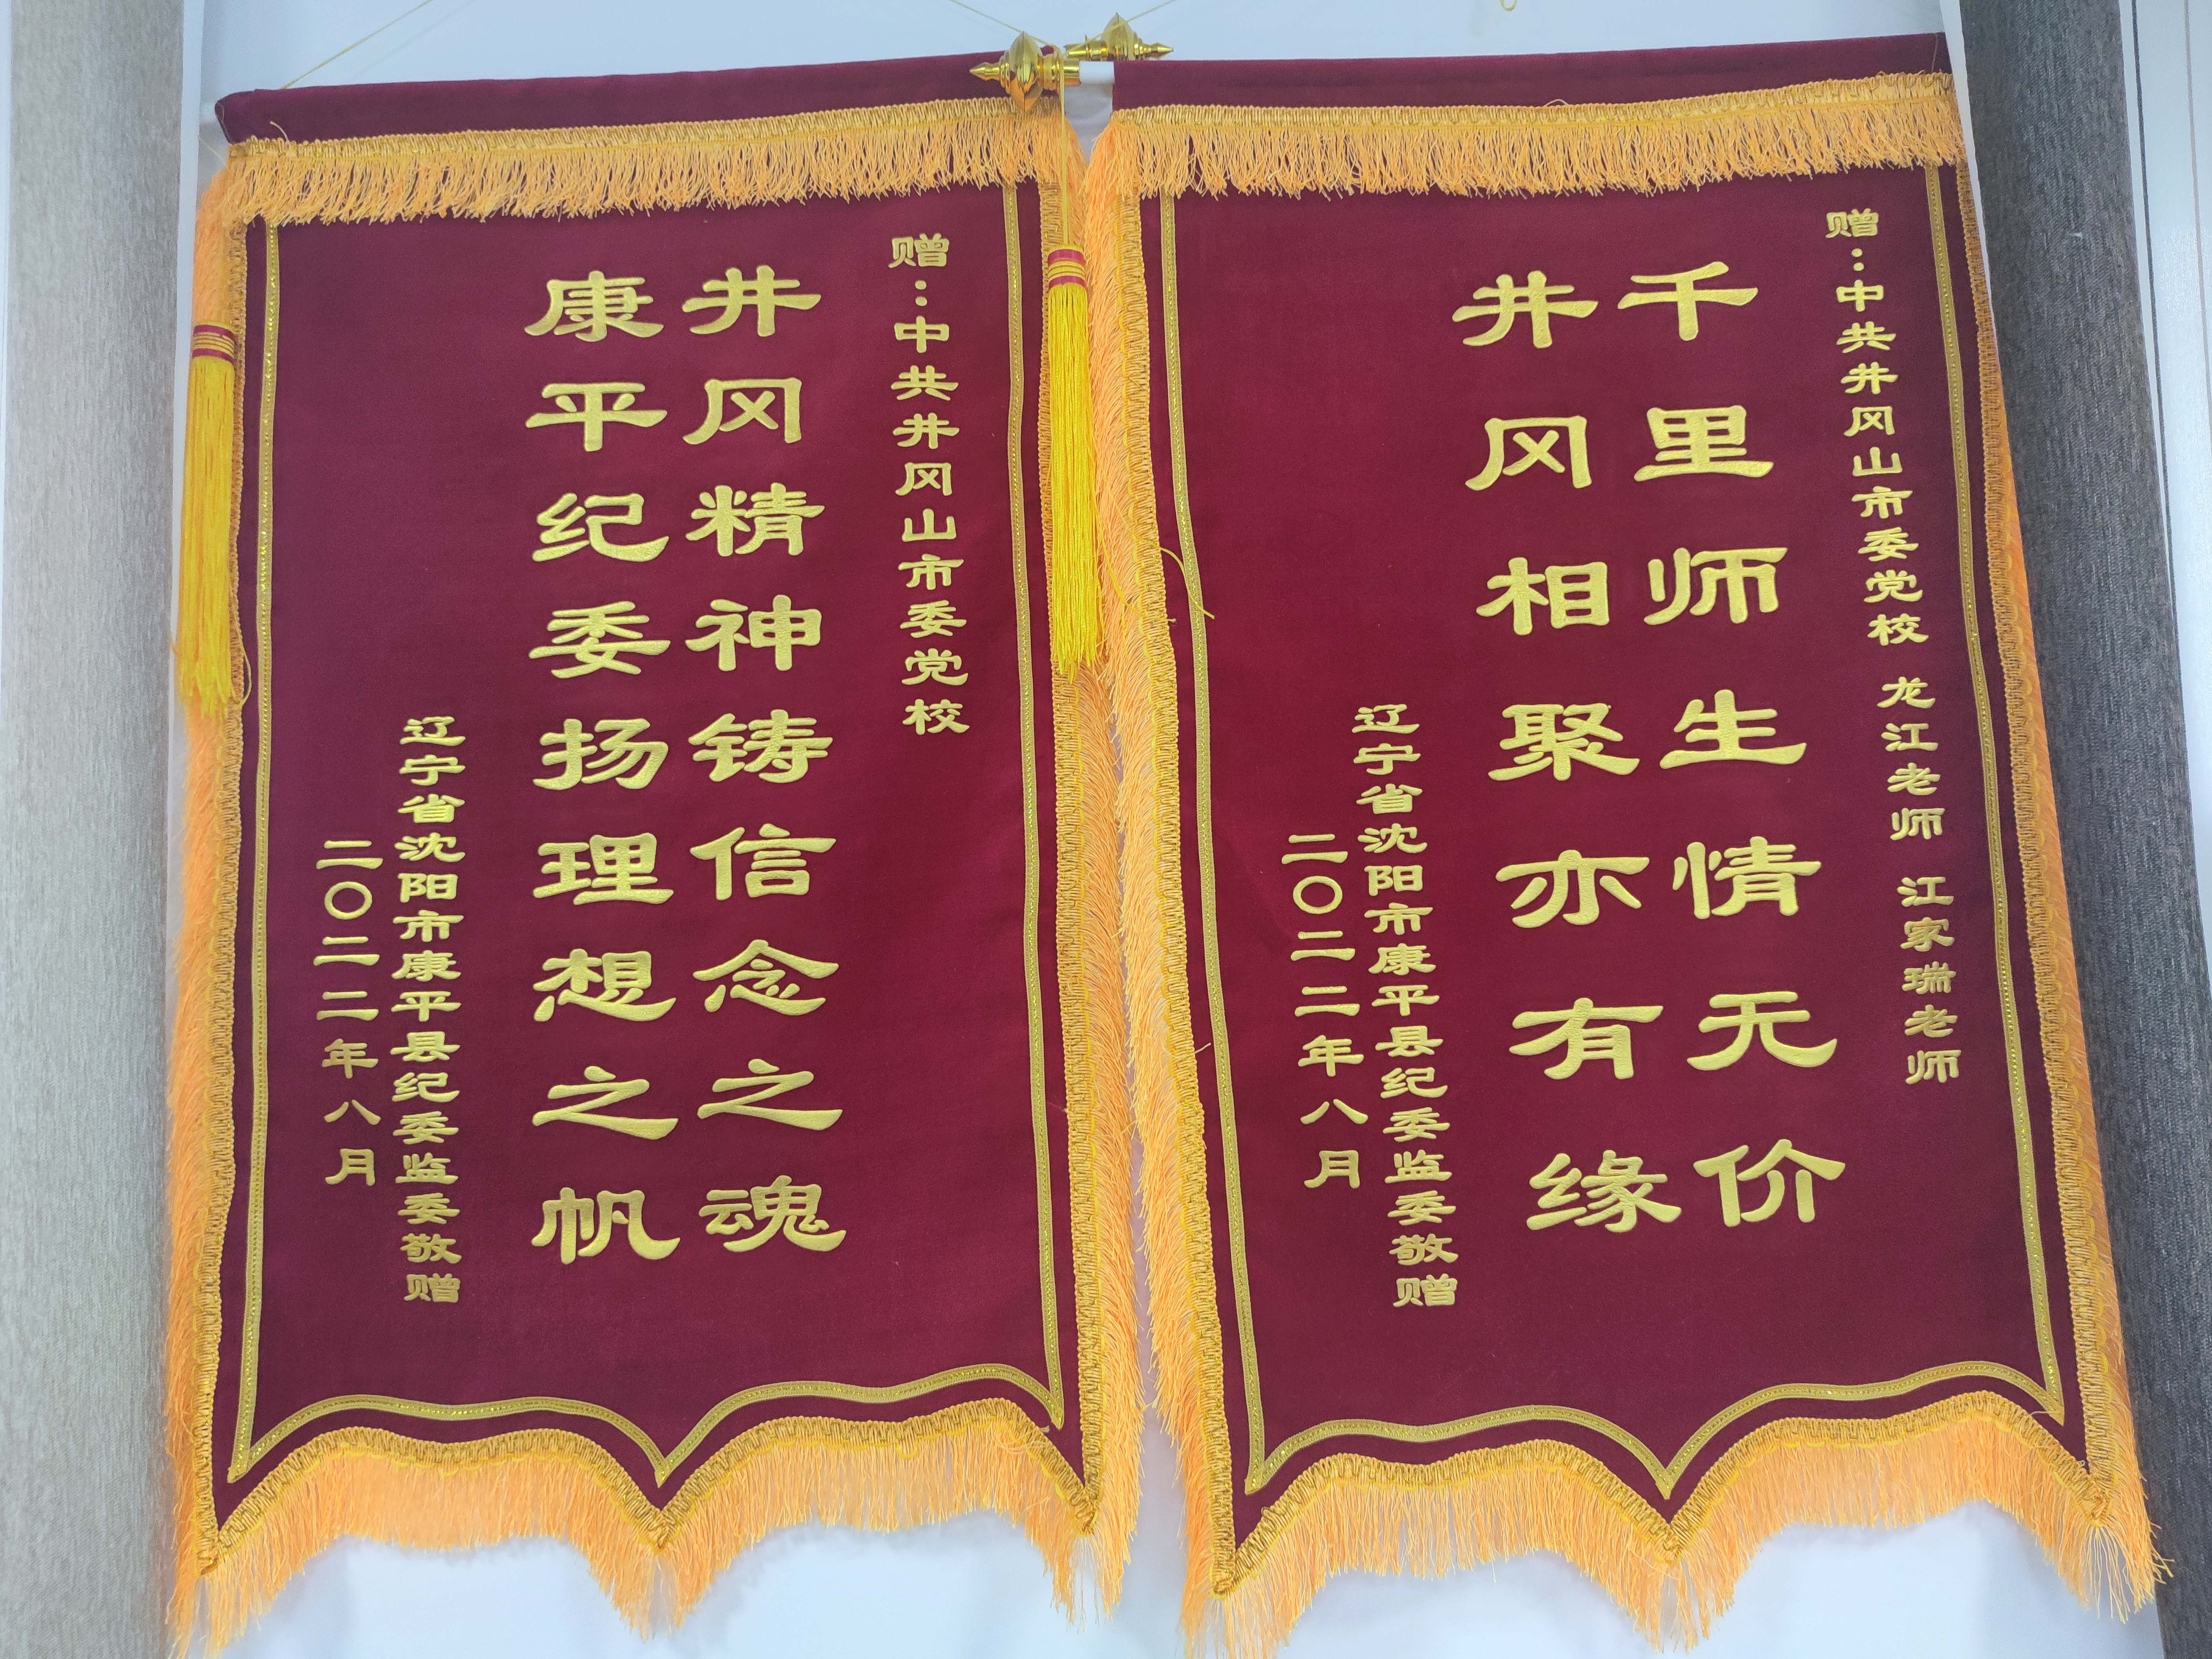 赠：中共井冈山市委党校
井冈精神铸信念之魂
康平纪委扬理想之帆
辽宁省沈阳市康平县纪委监委敬赠
二〇二二年八月
赠：中共井冈山市委党校 龙江老师 江家瑞老师
千里师生情无价
井冈相聚亦有缘
辽宁省沈阳市康平县纪委监委敬赠
二〇二二年八月